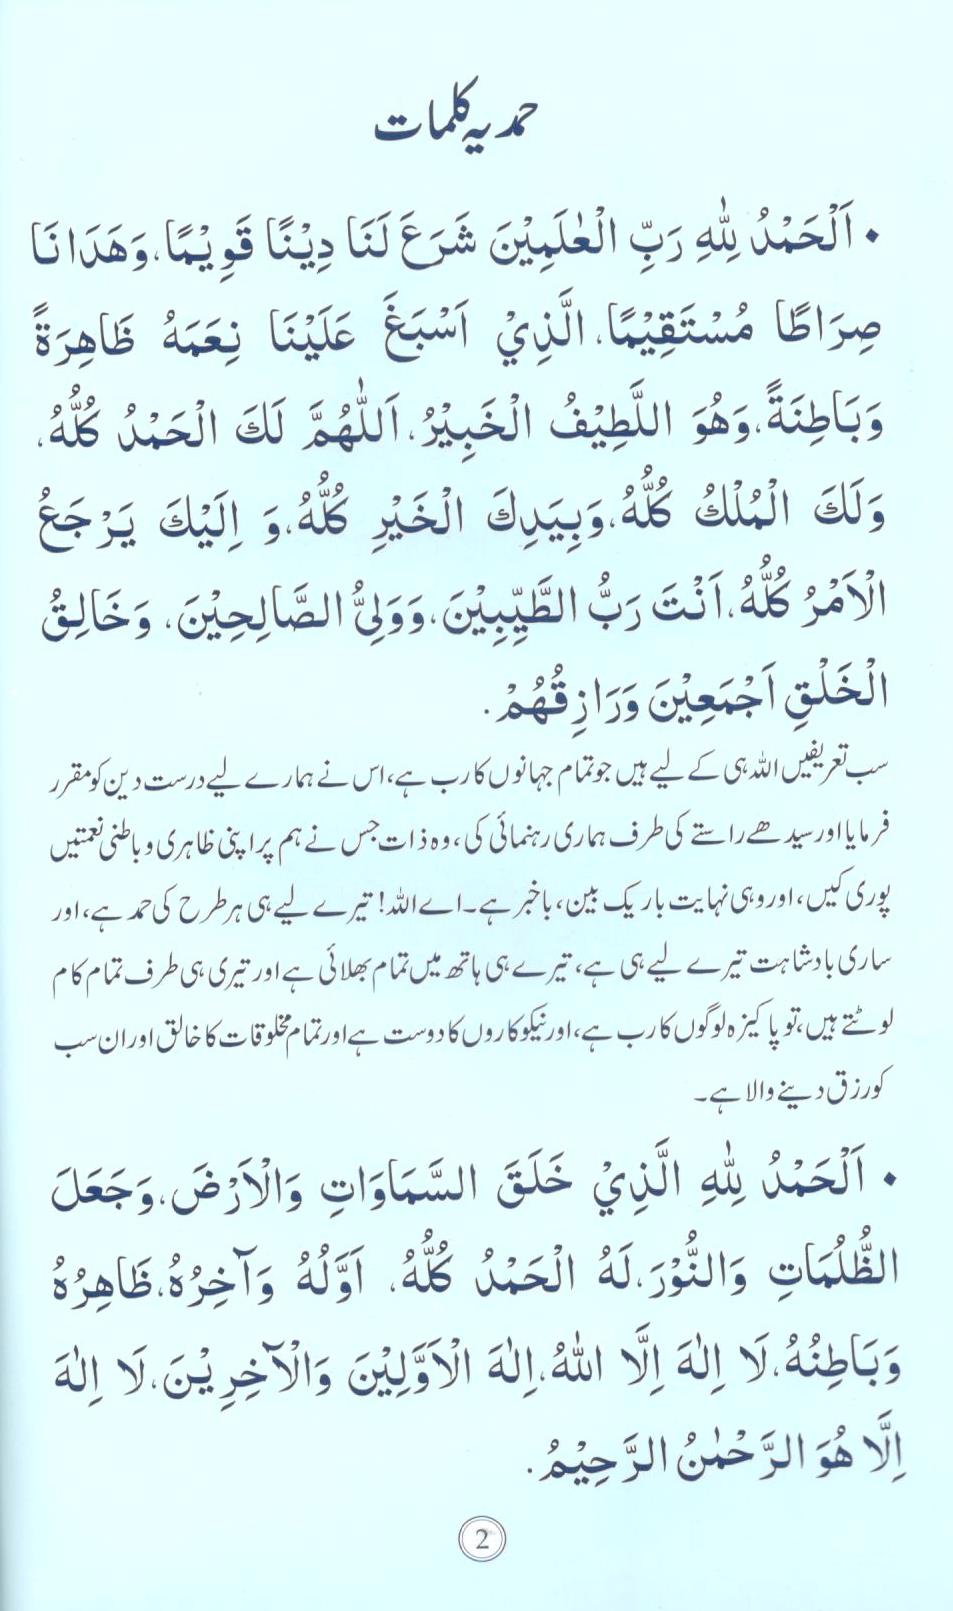 حمدیہ کلمات
• اَلْحَمْدُ لِلّٰهِ رَبِّ الْعٰلَمِيْنَ شَرَعَ لَنَا دِيْنًا قَوِيْمًا، وَهَدَانَا
صِرَاطًا مُسْتَقِيْمًا، الَّذِيْ اَسْبَغَ عَلَيْنَا نِعَمَهُ ظَاهِرَةً
وَبَاطِنَةً، وَهُوَ اللَّطِيْفُ الْخَبِيْرُ، اَللّٰهُمَّ لَكَ الْحَمْدُ كُلُّهُ،
وَلَكَ الْمُلْكُ كُلُّهُ، وَبِيَدِكَ الْخَيْرِ كُلُّهُ، وَ اِلَيْكَ يَرْجَعُ
الْاَمْرُ كُلُّهُ، اَنْتَ رَبُّ الطَّيِّبِيْنَ، وَوَلِيُّ الصَّالِحِيْنَ، وَخَالِقُ
الْخَلْقِ اَجْمَعِيْنَ وَرَازِقُهُمْ.
سب تعریفیں اللہ ہی کے لیے ہیں جو تمام جہانوں کا رب ہے، اس نے ہمارے لیے درست دین کو مقرر
فرمایا اور سیدھے راستے کی طرف ہماری رہنمائی کی، وہ ذات جس نے ہم پر اپنی ظاہری و باطنی نعمتیں
پوری کیں، اور وہی نہایت باریک بین، باخبر ہے۔ اے اللہ! تیرے لیے ہی ہر طرح کی حمد ہے، اور
ساری بادشاہت تیرے لیے ہی ہے، تیرے ہی ہاتھ میں تمام بھلائی ہے اور تیری ہی طرف تمام کام
لوٹتے ہیں، تو پاکیزہ لوگوں کا رب ہے، اور نیکوکاروں کا دوست ہے اور تمام مخلوقات کا خالق اور ان سب
کو رزق دینے والا ہے۔
• اَلْحَمْدُ لِلّٰهِ الَّذِيْ خَلَقَ السَّمَاوَاتِ وَالْاَرْضَ، وَجَعَلَ
الظُّلُمَاتِ وَالنُّوْرَ، لَهُ الْحَمْدُ كُلُّهُ، اَوَّلُهُ وَآخِرُهُ، ظَاهِرُهُ
وَبَاطِنُهُ، لَا اِلٰهَ اِلَّا اللّٰهُ، اِلٰهَ الْاَوَّلِيْنَ وَالْآخِرِيْنَ، لَا اِلٰهَ
اِلَّا هُوَ الرَّحْمٰنُ الرَّحِيْمُ.
2